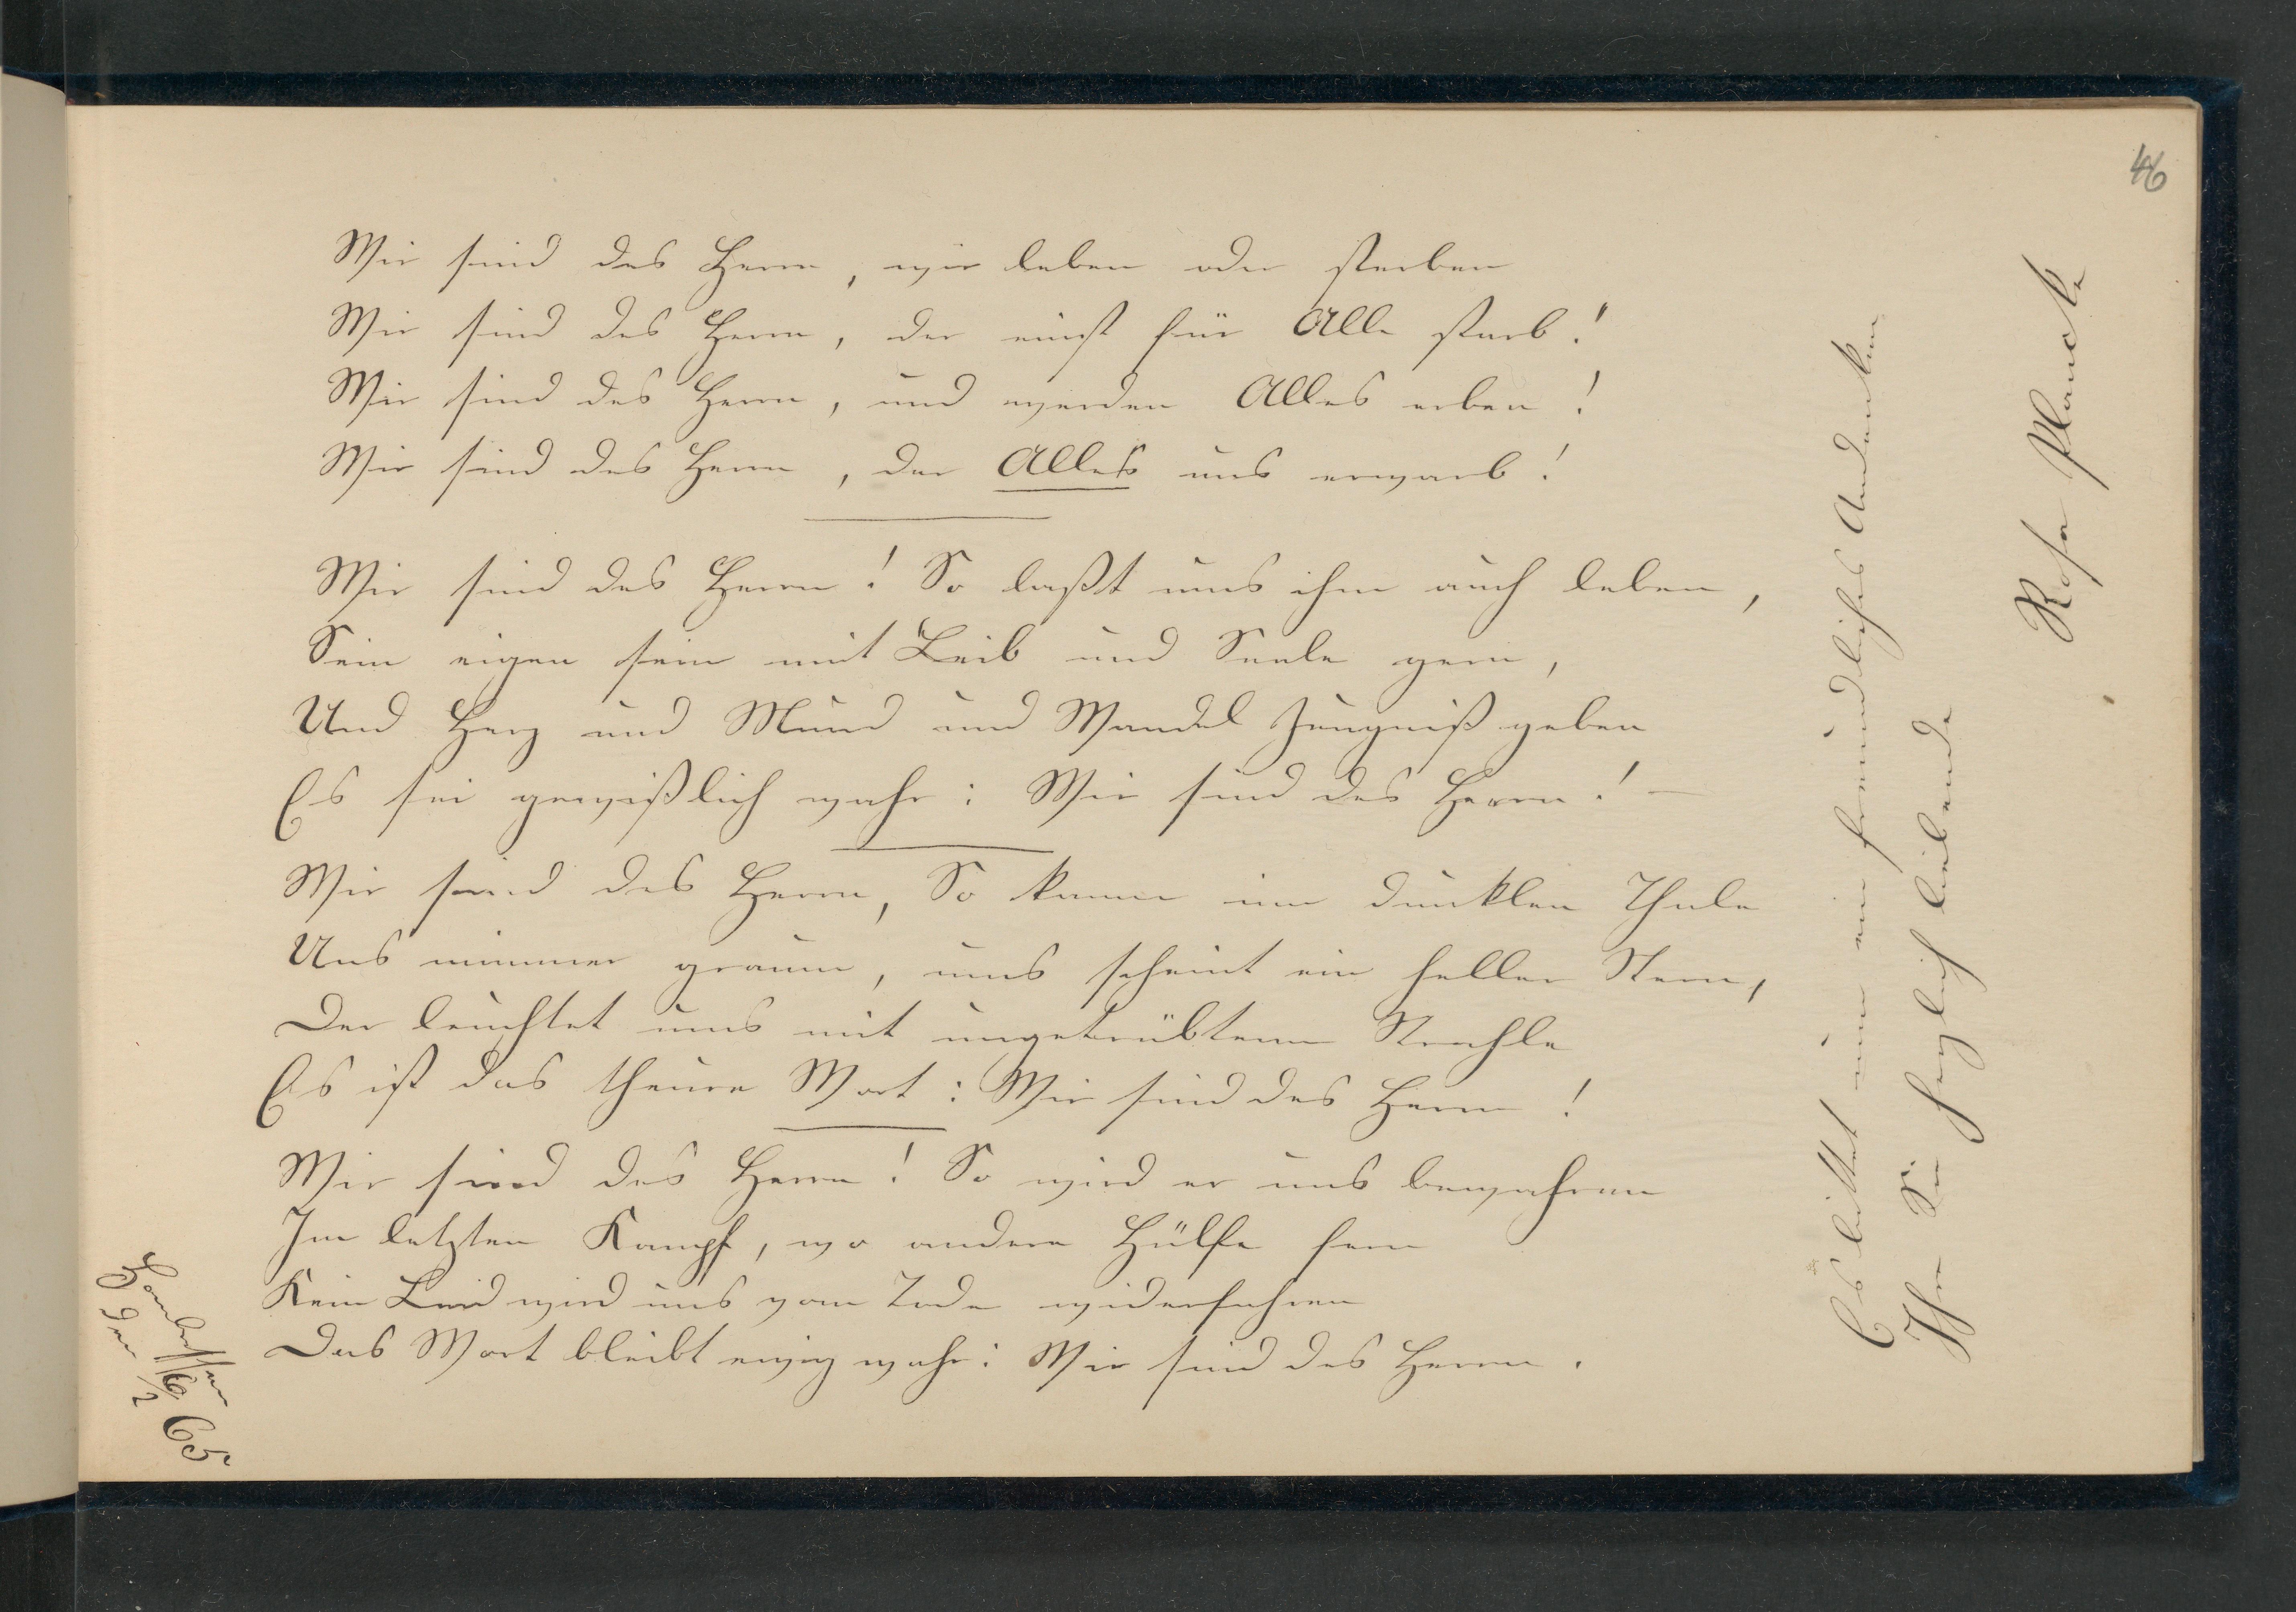 46
Wir sind des Herrn, wir leben oder sterben
Wir sind des Herrn, der einst für Alle starb!
Wir sind des Herrn, und werden Alles erben!
Wir sind des Herrn, der Alles uns erwarb!
Wir sind des Herrn! So laßt uns ihm auch leben,
Sein eigen sein mit Leib und Seele gern,
Und Herz und Mund und Wandel Zeugniß geben
Es sei gewißlich wahr: Wir sind des Herrn! –
Wir sind des Herrn, So kann im dunklen Thale
Uns nimmer graun, uns scheint ein heller Stern,
Der leuchtet uns mit ungetrübtem Strahle
Es ist das theure Wort: Wir sind des Herrn!
Wir sind des Herrn! So wird er uns bewahren
Im letzten Kampf, wo andere Hülfe fern
Kein Leid wird uns vom Tode widerfahren
Das Wort bleibt ewig wahr: Wir sind des Herrn.
Es bittet um ein freundliches Andenken
Ihr Sie herzlich liebende
Rosa Planck
den 2/6 65